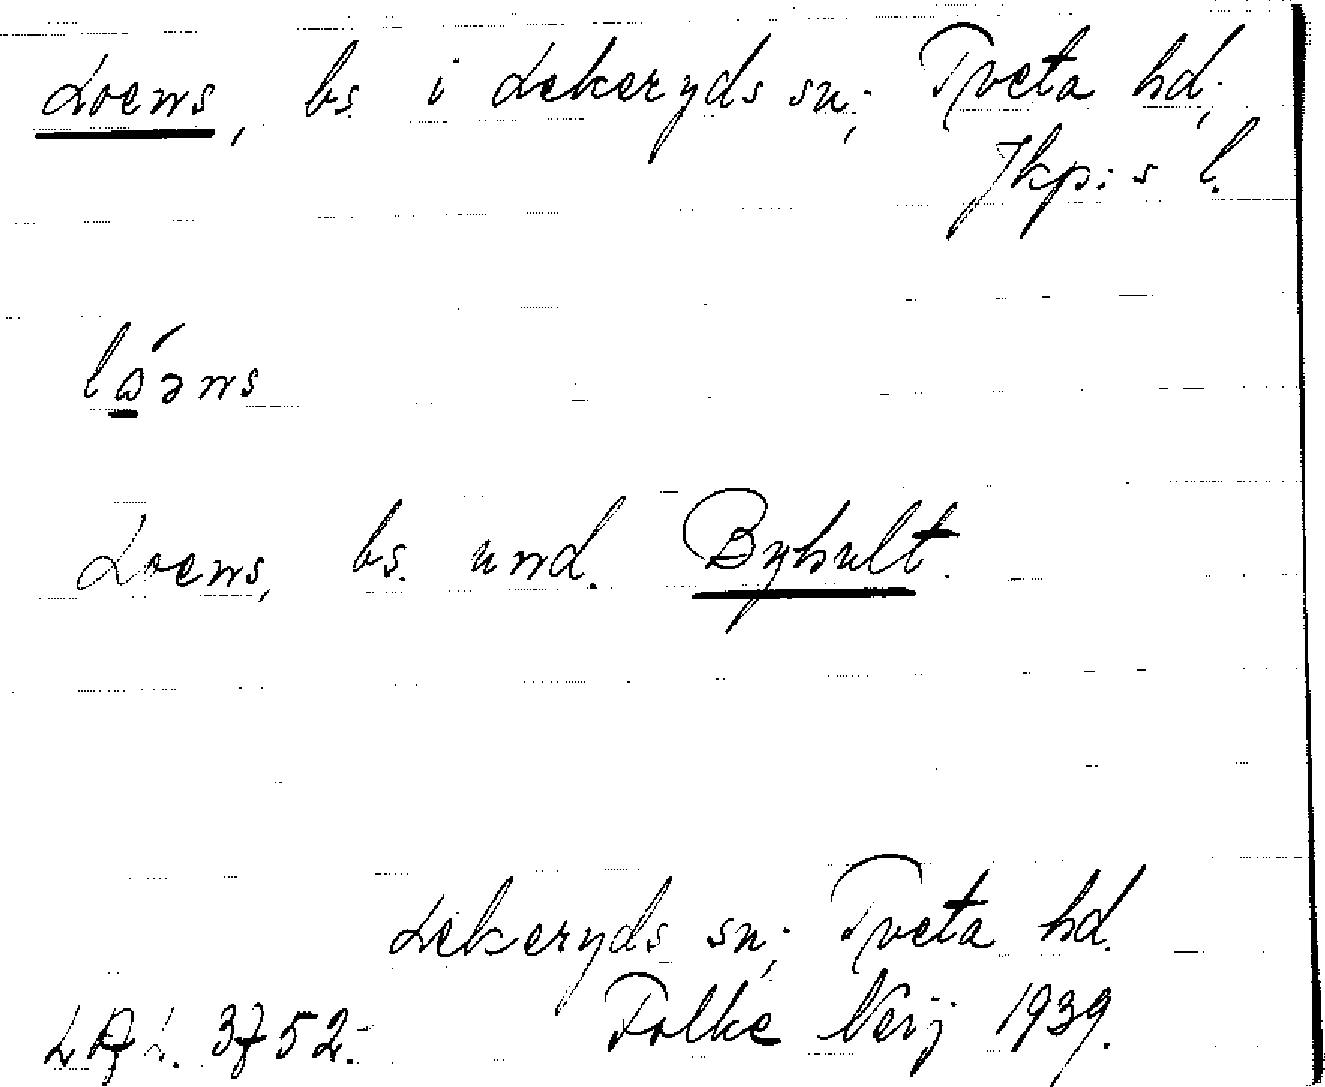 Loens, bs. i Lekeryds sn; Tveta hd;
Jkp:s l.
Loens, bs. und. Byhult.
Lekeryds sn; Tveta hd.
Folke Neij 1939.